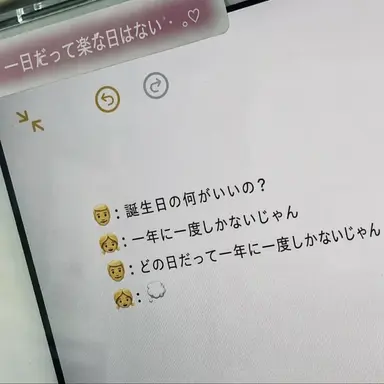 一日だって楽な日はない・｡♡
👨🏼：誕生日の何がいいの？
👧🏼：一年に一度しかないじゃん
👨🏼：どの日だって一年に一度しかないじゃん
👧🏼：💭